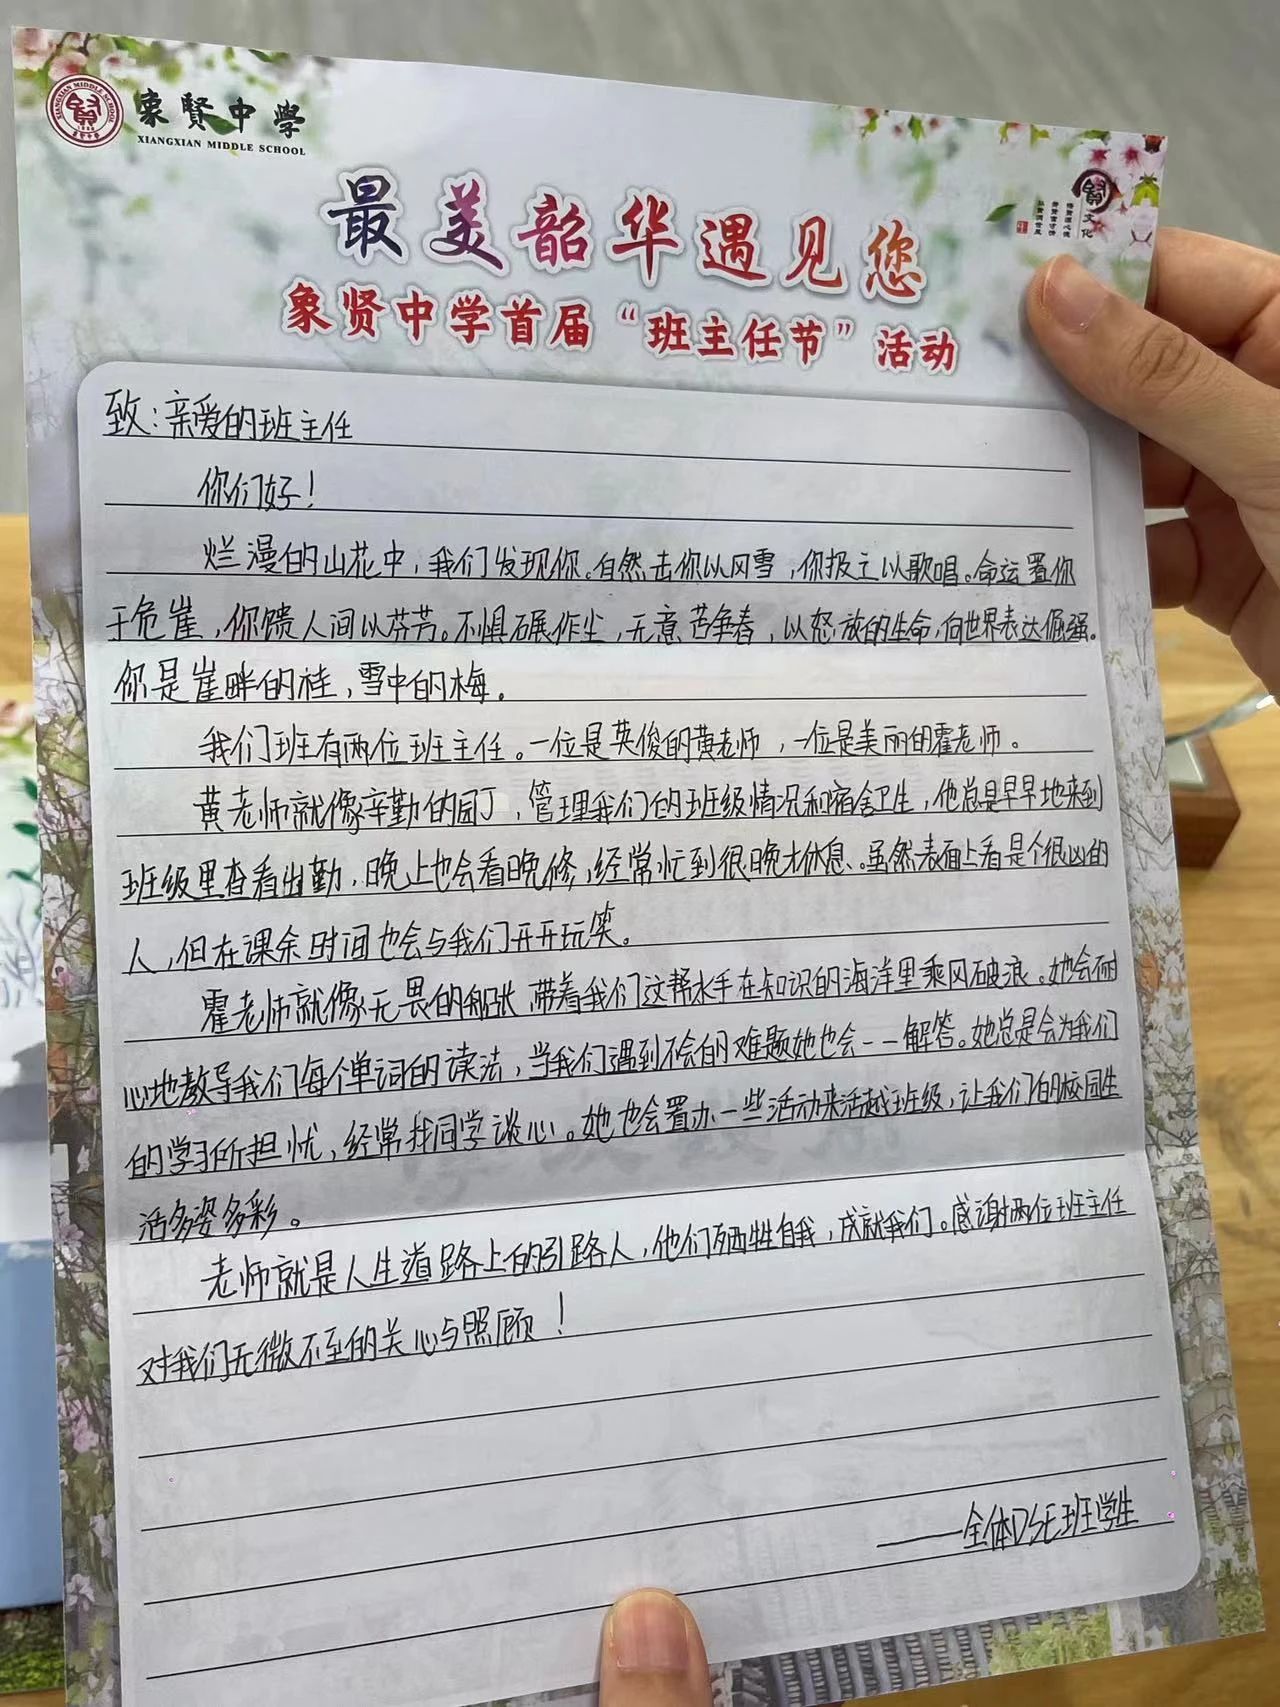 象賢中学
XIANGXIAN MIDDLE SCHOOL
賢文化
最美韶华遇见您
象贤中学首届“班主任节”活动
致:亲爱的班主任
你们好!
烂漫的山花中,我们发现你。自然击你以风雪,你报之以歌唱。命运置你
于危崖,你馈人间以芬芳。不惧碾作尘,无意苦争春,以怒放的生命,向世界表达倔强。
你是崖畔的桂,雪中的梅。
我们班有两位班主任。一位是英俊的黄老师,一位是美丽的霍老师。
黄老师就像辛勤的园丁,管理我们的班级情况和宿舍卫生,他总是早早地来到
班级里查看出勤,晚上也会看晚修,经常忙到很晚才休息。虽然表面上看是个很凶的
人,但在课余时间也会与我们开开玩笑。
霍老师就像无畏的船张,带着我们这帮水手在知识的海洋里乘风破浪。她会耐
心地教导我们每个单词的读法,当我们遇到不会的难题她也会一一解答。她总是会为我们
的学习所担忧,经常找同学谈心。她也会置办一些活动来活越班级,让我们的校园生
活多姿多彩。
老师就是人生道路上的引路人,他们牺牲自我,成就我们。感谢两位班主任
对我们无微不至的关心与照顾!
——全体DSE班学生